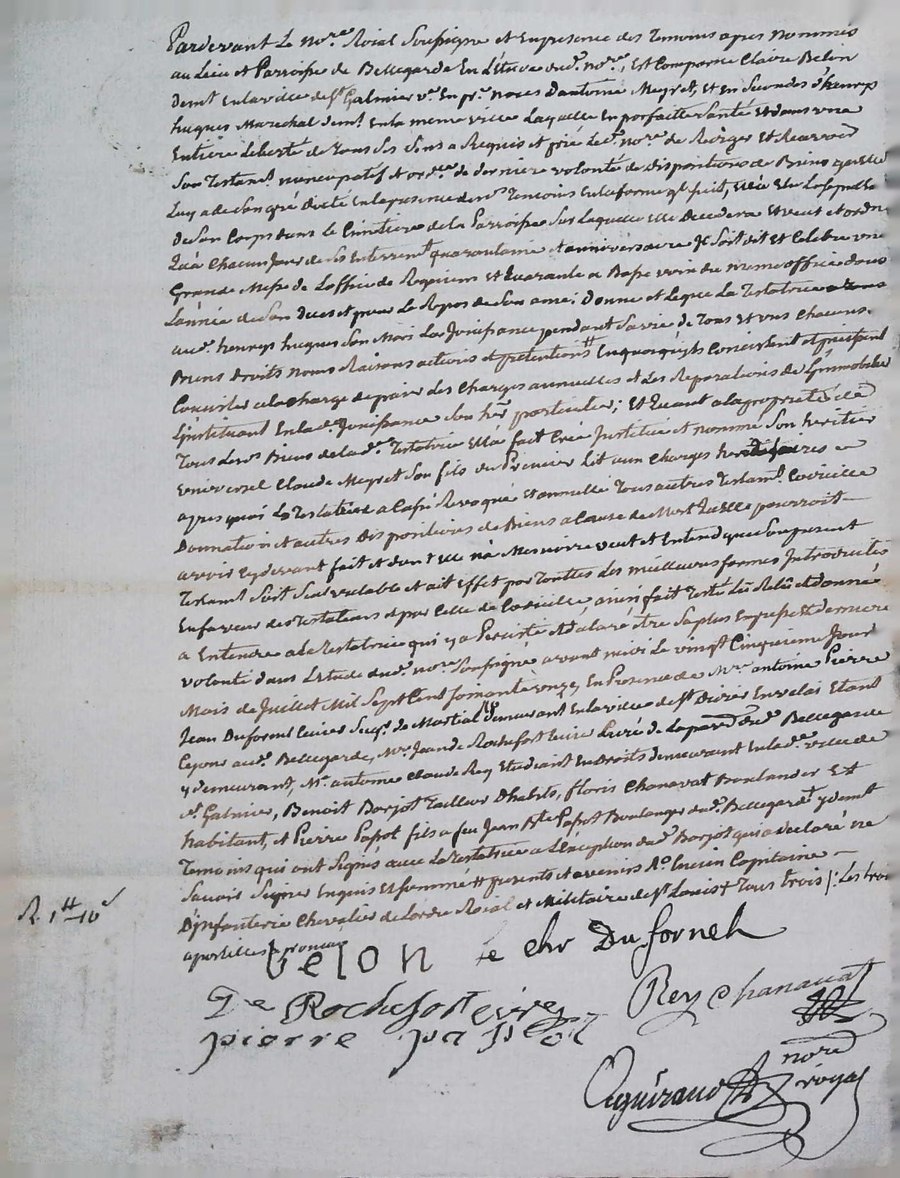 Pardevant Le nore Roial Soussigné et En presence des Temoins apres nommés
au Lieu et Parroisse de Bellegarde En L'Etude dud. nore, Est Comparue Claire Belon
demt En la ville de St Galmier ve En pres noces d'antoine Meyret, et en Secondes d'henry
hugues Marechal demt En la meme ville Laquelle En parfaitte Santé et dans une
Entiere Liberté de Tous Ses Sens a Requis et prié Led. nore de Rediger Et Recevoir
Son Testamt nuncupatif et ordce de derniere volonté de dispositions de Biens qu'elle
Luy a de Son gré dicté En la presence des Temoins En la forme qui Suit, Elit La Sepulture
De Son Corps dans Le Cimetiere de la Parroisse Sur Laquelle elle Decedera Et veut et ordne
Qu'a Chacun Jour de Ses Enterremt quarantaine et anniversaire Il Soit dit et Celebré une
Grande Messe de L'office de Requiem Et Quarante a Basse voix du meme office dans
L'année de Son deces et pour Le Repos de Son ame; Donne et Legue La Testatrice
aud. henrys hugues Son Mari La Jouissance pendant Sa vie de Tous Et uns Chacuns
Biens Droits noms Raisons actions et pretentions En quoi qu'ils Consistent et puissent
Consister a la charge de paier Les Charges annuelles et Les Reparations de L'immobilier
L'instituant En lad. Jouissance Son her particulier; Et Quant a la proprieté de
Tous Lesd. Biens de lad. Testatrice Elle a fait Créé Institué et nommé Son heritier
universel Claude Meyret Son fils du Premier Lit aux Charges hereditaires
apres quoi La Testatrice a Cassé Revoqué Et annullé Tous autres Testamt Codicille
Donnation et autres Dispositions de Biens a Cause de Mort Qu'elle pourroit
avoir Cy devant fait et dont elle n'a Memoire veut et Entend que Son present
Testamt Soit Seul valable et ait Effet par Touttes Les meilleures formes Introduites
En faveur des Testations et par Celle de Codicille, ainsi fait Testé Lu Relu et donné
a Entendre a la Testatrice qui y a Persisté Et declaré être Sa plus Expresse et derniere
volonté dans L'Etude dud. nore Soussigné avant midi Le vingt Cinquieme Jour
Mois de Juillet Mil Sept Cent Soixante onze, En Presence de Mre antoine Pierre
Jean Duforneil Demeurant En la ville de St Didier En velai Etant
Ce jour aud. Bellegarde, Mre Jean de Rochefort Curé de La paroisse dud. Bellegarde
y demeurant, Mr antoine Claude Rey Etudiant En Droits demeurant En lad. ville de
St Galmier, Benoit Borjot Tailleur D'habits, floris Chanavat Boulanger Et
habitant, et Pierre Papot fils a feu Jean Bte Papot Boulanger dud. Bellegarde y demt
Temoins qui ont Signés avec La Testatrice a L'exception dud. Borjot qui a declaré ne
Savoir Signer Enquis Et Sommé # presents et avenirs Capitaine
D'infanterie Chevalier de Lordre Roial et Militaire de St Louis + Tous trois /: Les trois
apostilles
R. 1# 10s
velon le chr Du forneil
De Rochefort Rey Chanavat
pierre papot
nore
royal